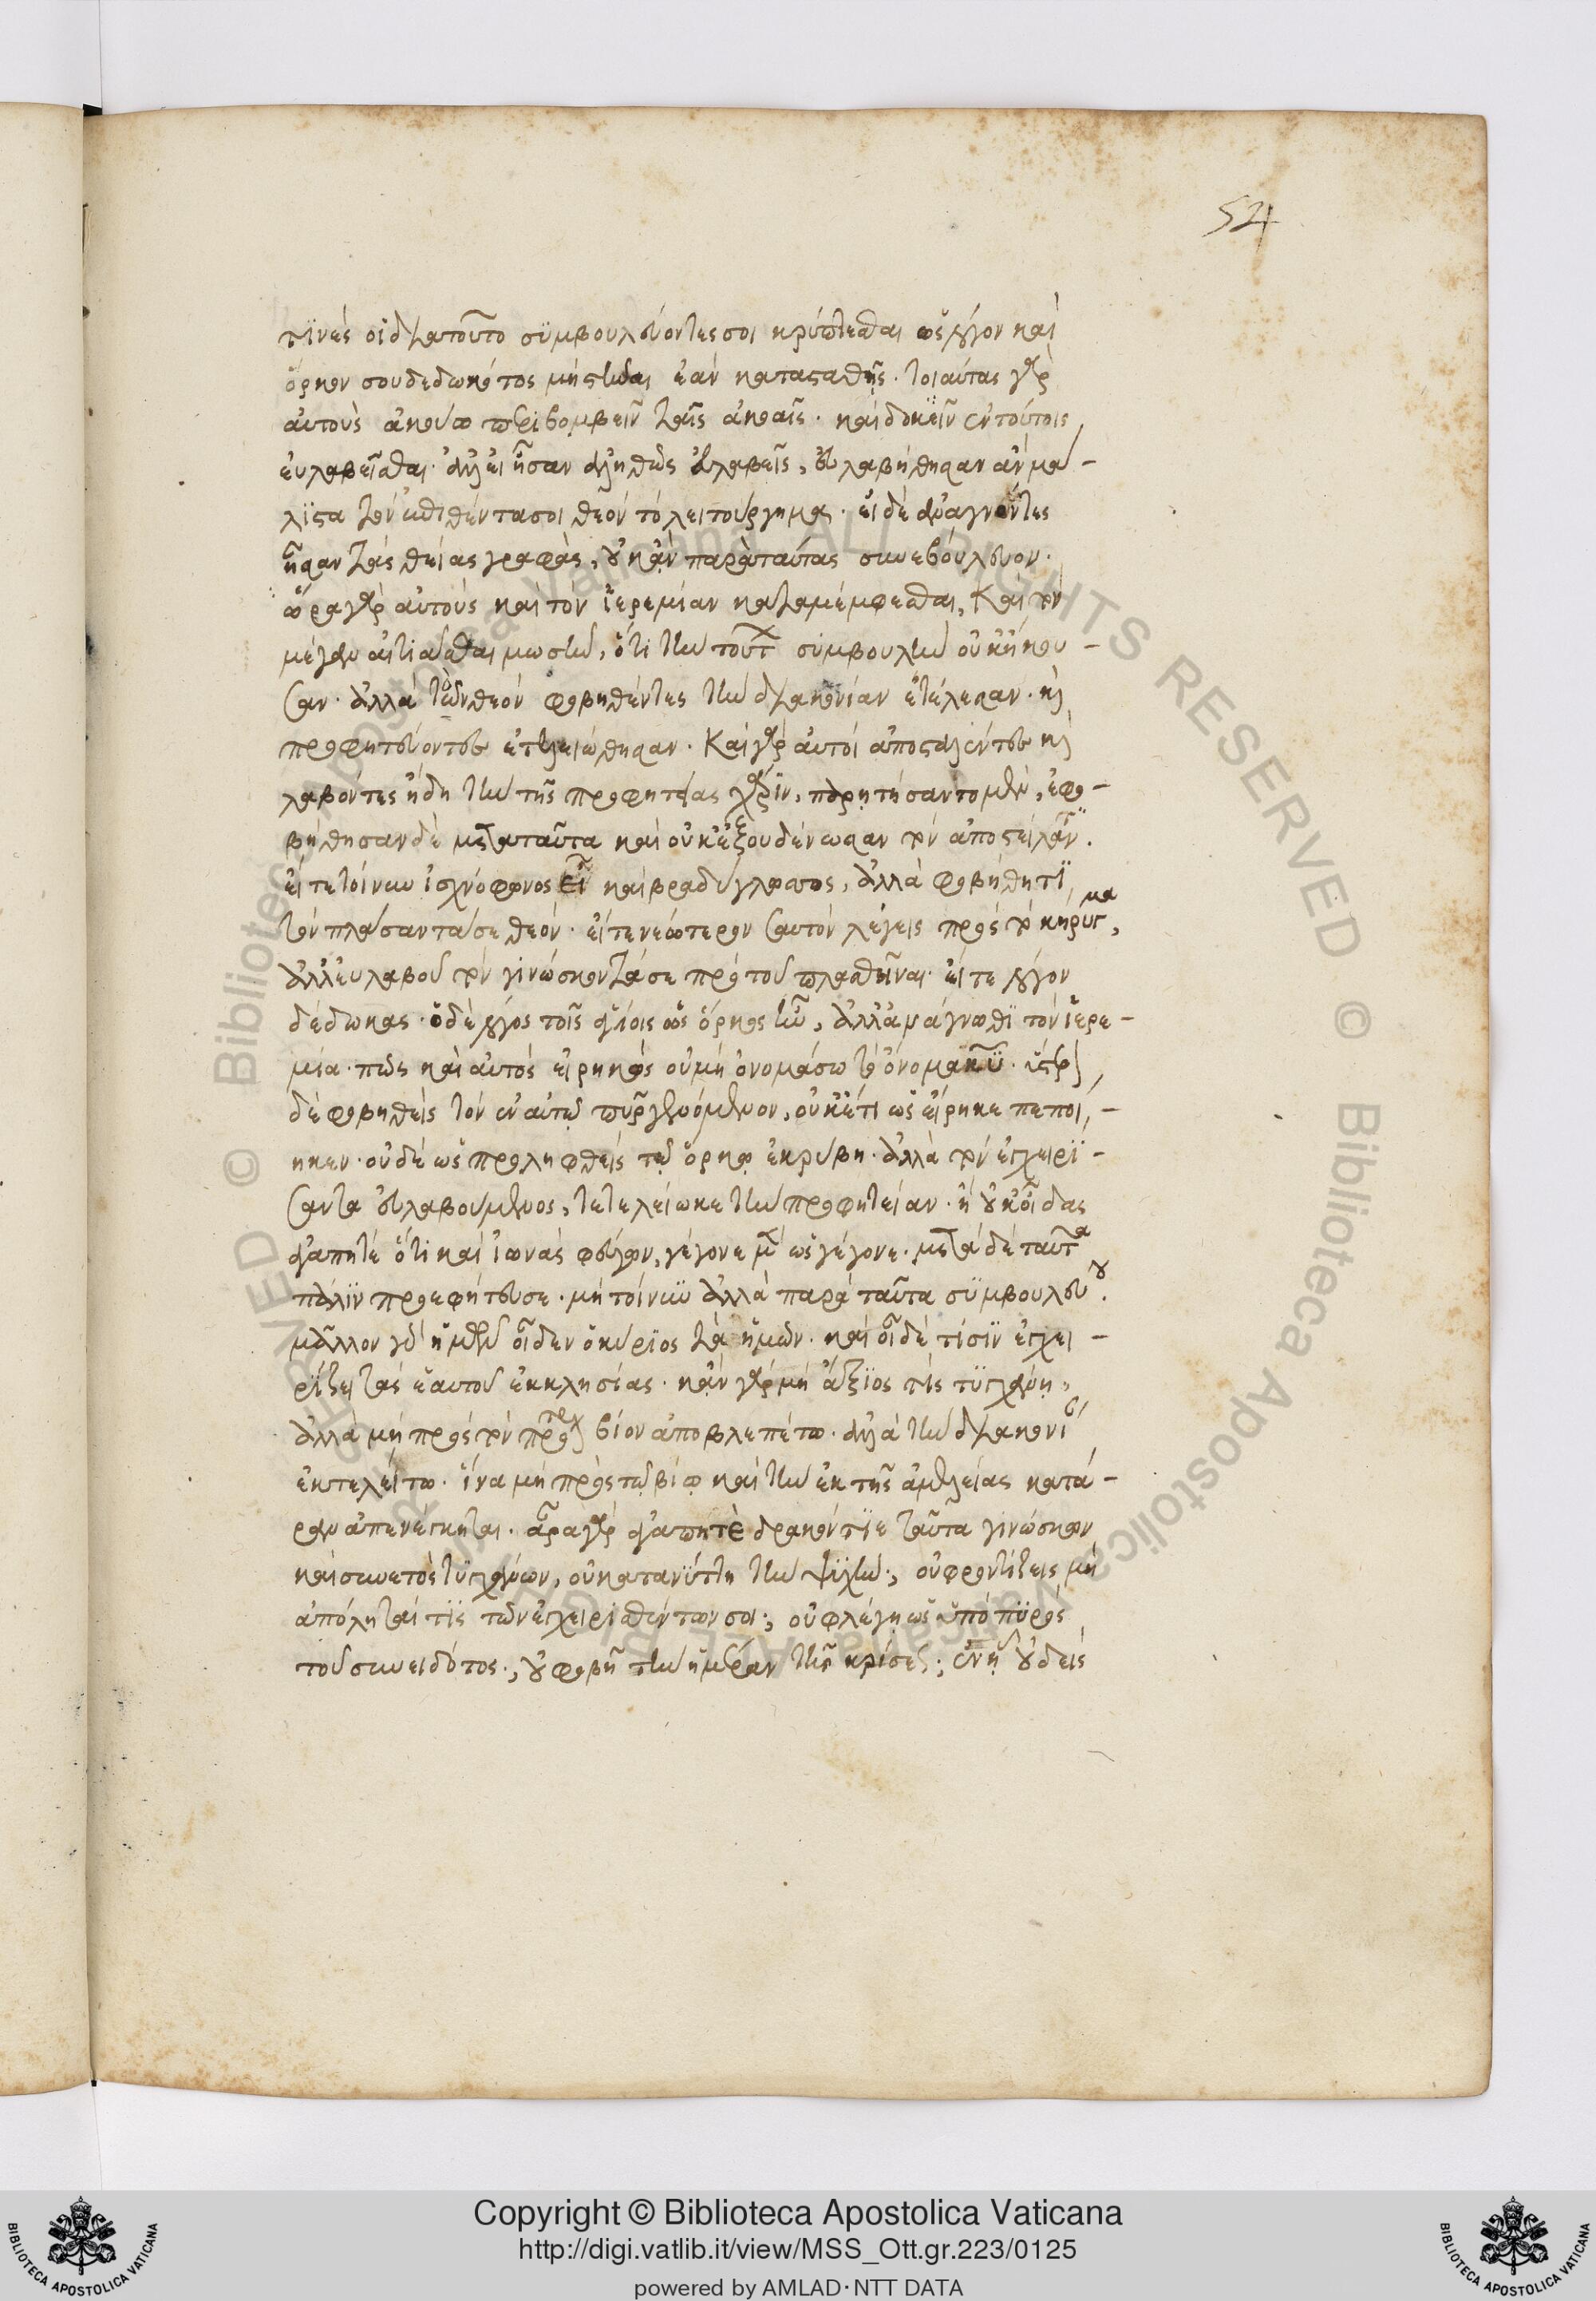 52
τινὲς οἱ διὰ τοῦτο συμβουλεύοντές σοι κρύπτεσθαι ὡς λόγον καὶ
ὅρκον σου δεδωκότος μὴ εἶναι ἐὰν κατασταθῇς. τοιαύτας γὰρ
αὐτοὺς ἀκούω περιβομβεῖν ταῖς ἀκοαῖς. καὶ δοκεῖν ἐν τούτοις
εὐλαβεῖσθαι. ἀλλ' εἰ ἦσαν ἀληθῶς εὐλαβεῖς, εὐλαβήθησαν ἂν μά-
λιστα τὸν ἐπιθέντα σοι θεὸν τὸ λειτούργημα. εἰ δὲ ἀναγνόντες
ἦσαν τὰς θείας γραφὰς, οὐκ ἂν παρὰ ταύτας συνεβούλευον.
ὥρα γὰρ αὐτοὺς καὶ τὸν ἱερεμίαν καταμέμφεσθαι, καὶ τὸν
μέγαν αἰτιᾶσθαι μωσῆν, ὅτι τὴν τοιαύτ συμβουλὴν οὐκ ἤκου-
σαν. ἀλλὰ τὸν θεὸν φοβηθέντες τὴν διακονίαν ἐτέλεσαν. καὶ
προφητεύοντες ἐτελειώθησαν. Καὶ γὰρ αὐτοὶ ἀποσταλέντες καὶ
λαβόντες ἤδη τὴν τῆς προφητείας χάριν, παρῃτήσαντο μὲν, ἐφο-
βήθησαν δὲ μετὰ ταῦτα καὶ οὐκ ἐξουδένωσαν τὸν ἀποστείλαντ.
εἴτε τοίνυν ἰσχνόφωνος εἶ καὶ βραδύγλωσσος, ἀλλὰ φοβήθητι
τὸν πλάσαντά σε θεόν. εἴτε νεώτερον σαυτὸν λέγεις πρὸς τὸ κήρυγμα,
ἀλλ' εὐλαβοῦ τὸν γινώσκοντά σε πρὸ τοῦ πλασθῆναι. εἴτε λόγον
δέδωκας. ὁ δὲ λόγος τοῖς ἁγίοις ὡς ὅρκος ἦν, ἀλλ' ἀνάγνωθι τὸν ἱερε-
μία. πῶς καὶ αὐτὸς εἰρηκὼς οὐ μὴ ὀνομάσω τὸ ὄνομα κυ. ὕστερον
δὲ φοβηθεὶς τὸν ἐν αὐτῷ πῦρ γενόμενον, οὐκ ἔτι ὡς εἴρηκε πεποί-
ηκεν. οὐδὲ ὡς προληφθεὶς τῷ ὅρκῳ ἐκρύβη. ἀλλὰ τὸν ἐγχειρί-
σαντα εὐλαβούμενος, τετελείωκε τὴν προφητείαν. ἢ οὐκ οἶδας
ἀγαπητὲ ὅτι καὶ ἰωνὰς φεύγων, γέγονε μὲν ὡς γέγονε. μετὰ δὲ ταῦτα
πάλιν προεφήτευσε. μὴ τοίνυν ἀλλὰ παρὰ ταῦτα συμβουλεύου.
μᾶλλον γὰρ ἡμῶν οἶδεν ὁ κύριος τὰ ἡμῶν. καὶ οἶδε τίσιν ἐγχει-
ρίζει τὰς ἑαυτοῦ ἐκκλησίας. κἂν γὰρ μὴ ἄξιος τὶς τυγχάνῃ,
ἀλλὰ μὴ πρὸς τὸν πρότερον βίον ἀποβλεπέτω. ἀλλὰ τὴν διακονί
ἐκτελείτω. ἵνα μὴ πρὸς τῷ βίῳ καὶ τὴν ἐκ τῆς ἀμελείας κατά-
ραν ἀπενέγκηται. ἆρα γὰρ ἀγαπητὲ δρακόντιε ταῦτα γινώσκων
καὶ συνετὸς τυγχάνων, οὐ κατανύττῃ τὴν ψυχήν;, οὐ φροντίζεις μὴ
ἀπόληταί τις τῶν ἐγχειρισθέντων σοι;, οὐ φλέγῃ ὡς ὑπὸ πυρὸς
τοῦ συνειδότος;, οὐ φοβῇ τὴν ἡμέραν τῆς κρίσεως; ἐν ᾗ οὐδεὶς
Copyright © Biblioteca Apostolica Vaticana
http://digi.vatlib.it/view/MSS_Ott.gr.223/0125
powered by AMLAD·NTT DATA